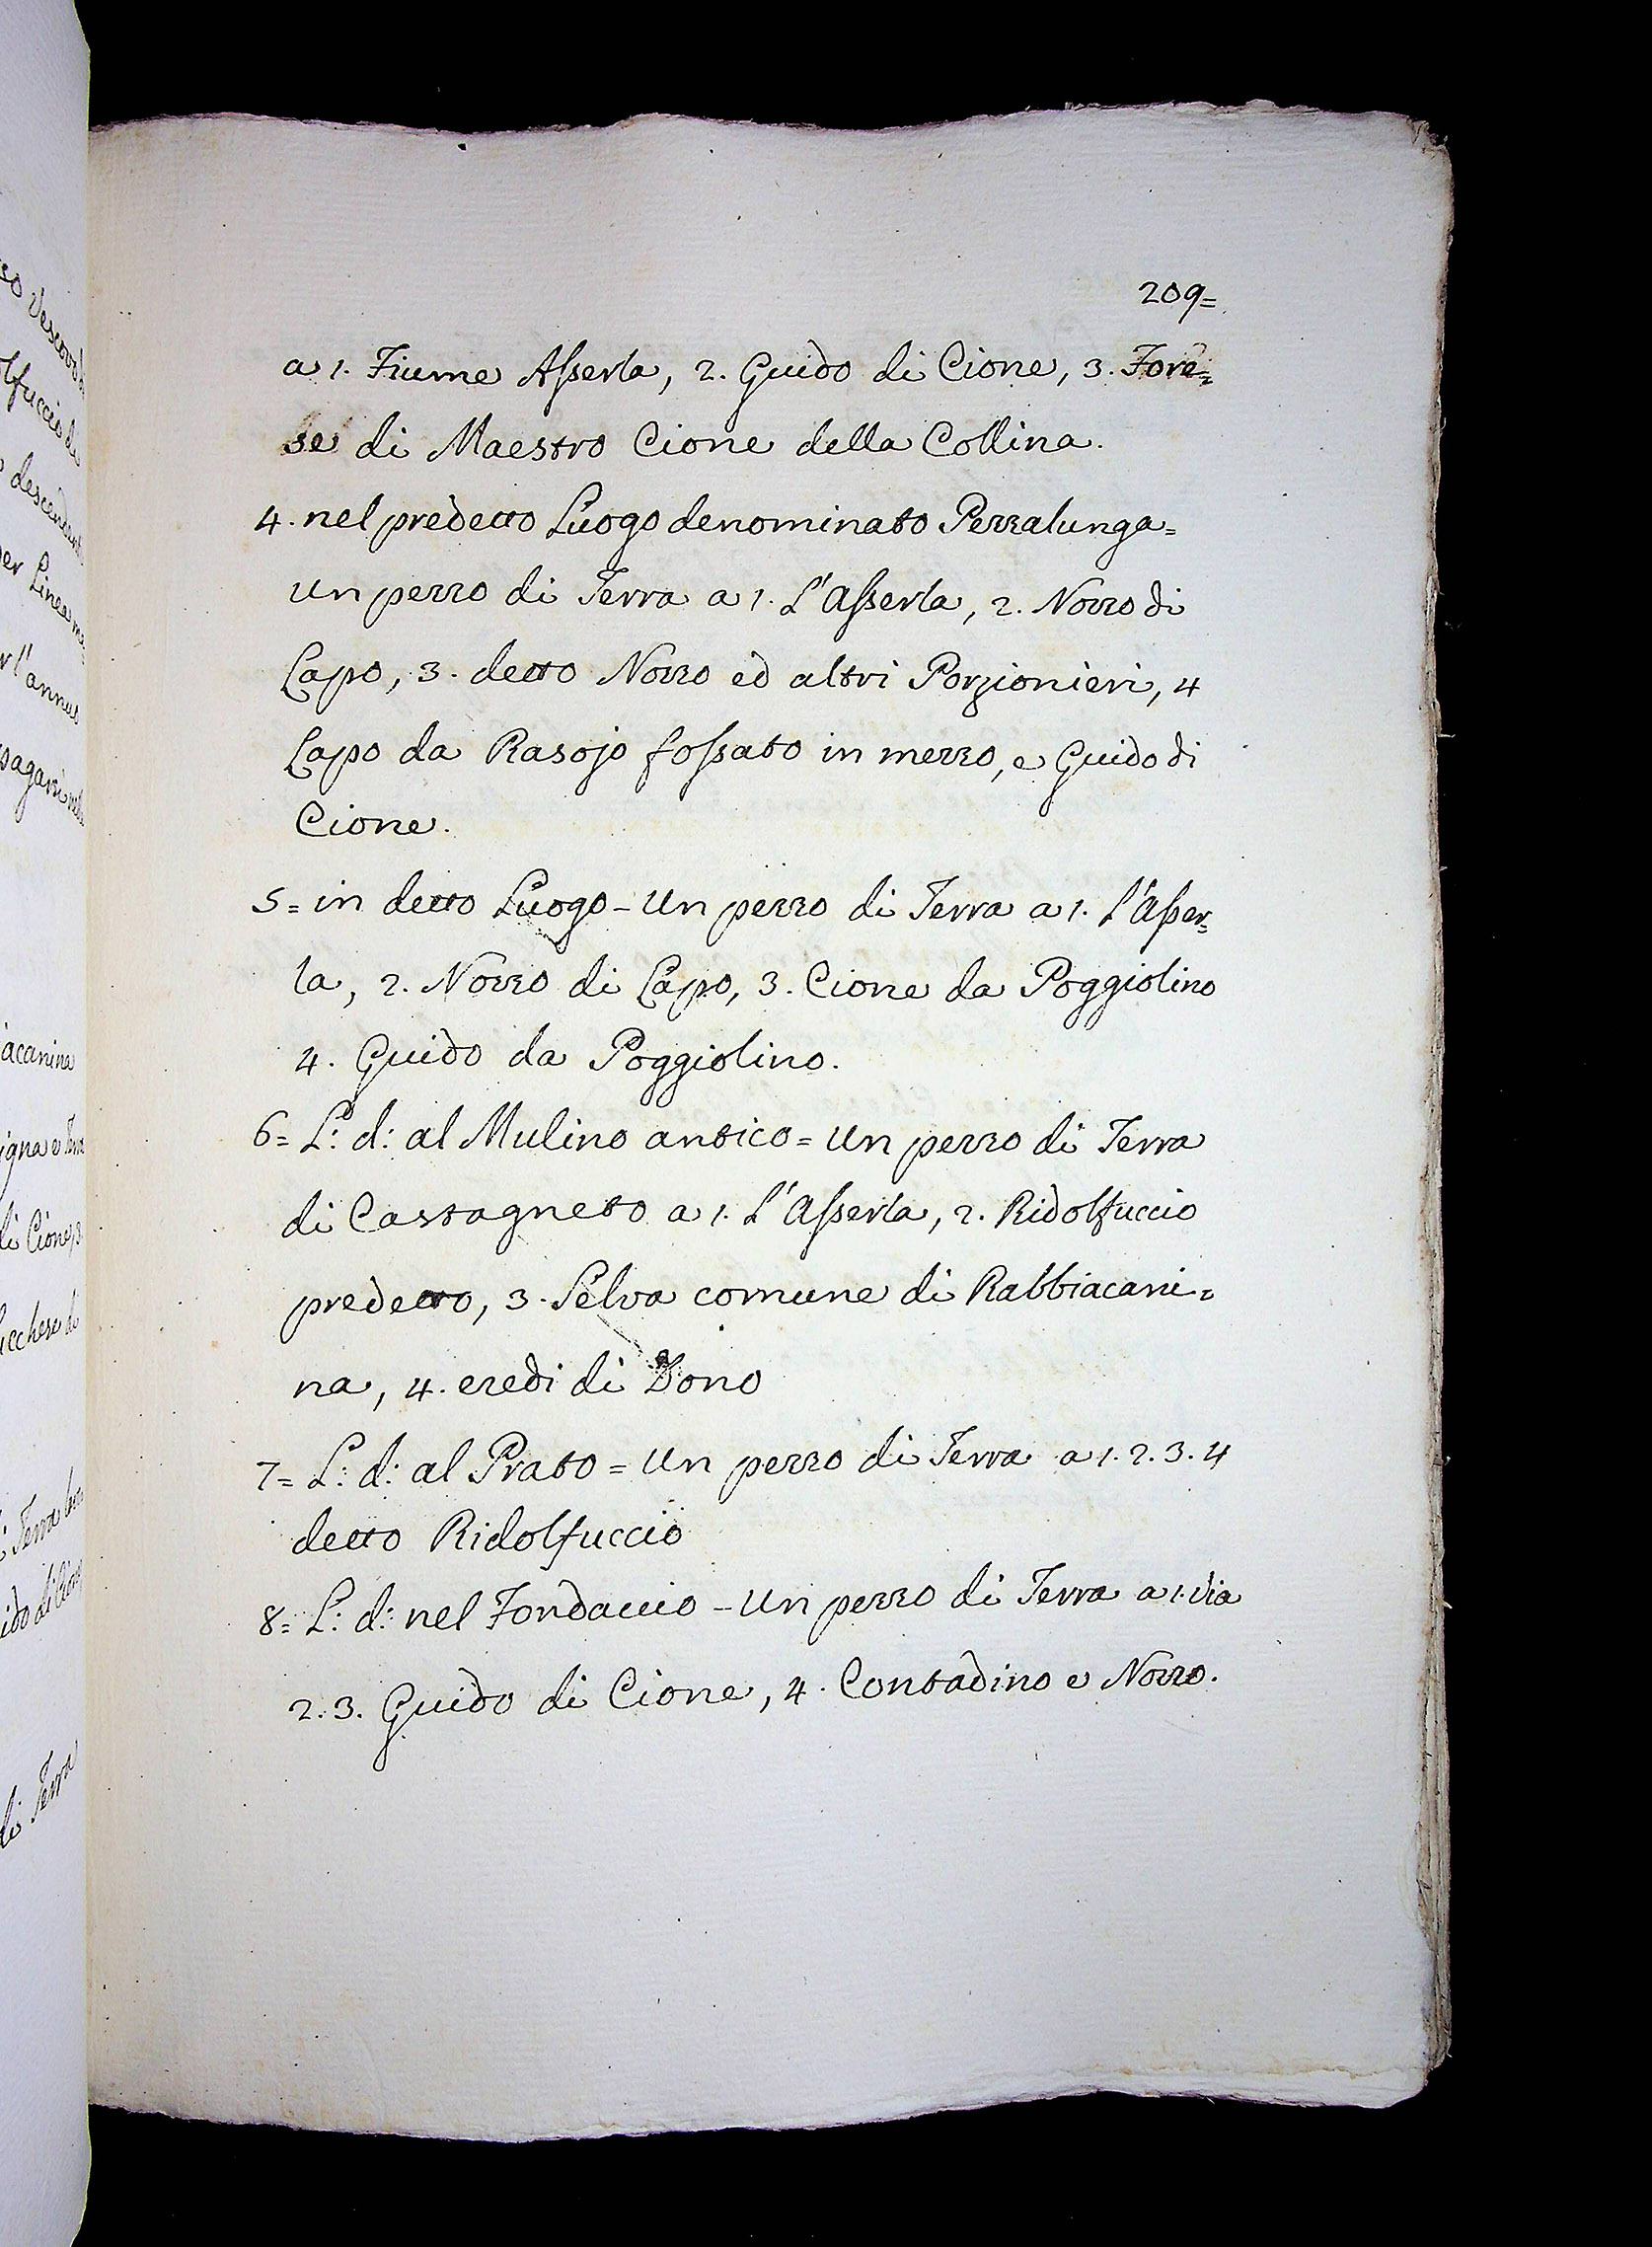 209=
a 1. Fiume Asserla, 2. Guido di Cione, 3. Fore=
se di Maestro Cione della Collina.
4. nel predetto Luogo denominato Pezzalunga=
un pezzo di Terra a 1. L'Asserla, 2. Nozzo di
Lapo, 3. detto Nozzo ed altri Porzionieri, 4
Lapo da Rasojo fossato in mezzo, e Guido di
Cione.
5= in detto Luogo - Un pezzo di Terra a 1. L'Asser=
la, 2. Nozzo di Lapo, 3. Cione da Poggiolino
4. Guido da Poggiolino.
6= L: d: al Mulino antico = Un pezzo di Terra
di Castagneto a 1. L'Asserla, 2. Ridolfuccio
predetto, 3. Selva comune di Rabbiacani=
na, 4. eredi di Dono
7= L: d: al Prato = Un pezzo di Terra a 1. 2. 3. 4
detto Ridolfuccio
8= L: d: nel Fondaccio - Un pezzo di Terra a 1. Via
2. 3. Guido di Cione, 4. Contadino e Nozzo.